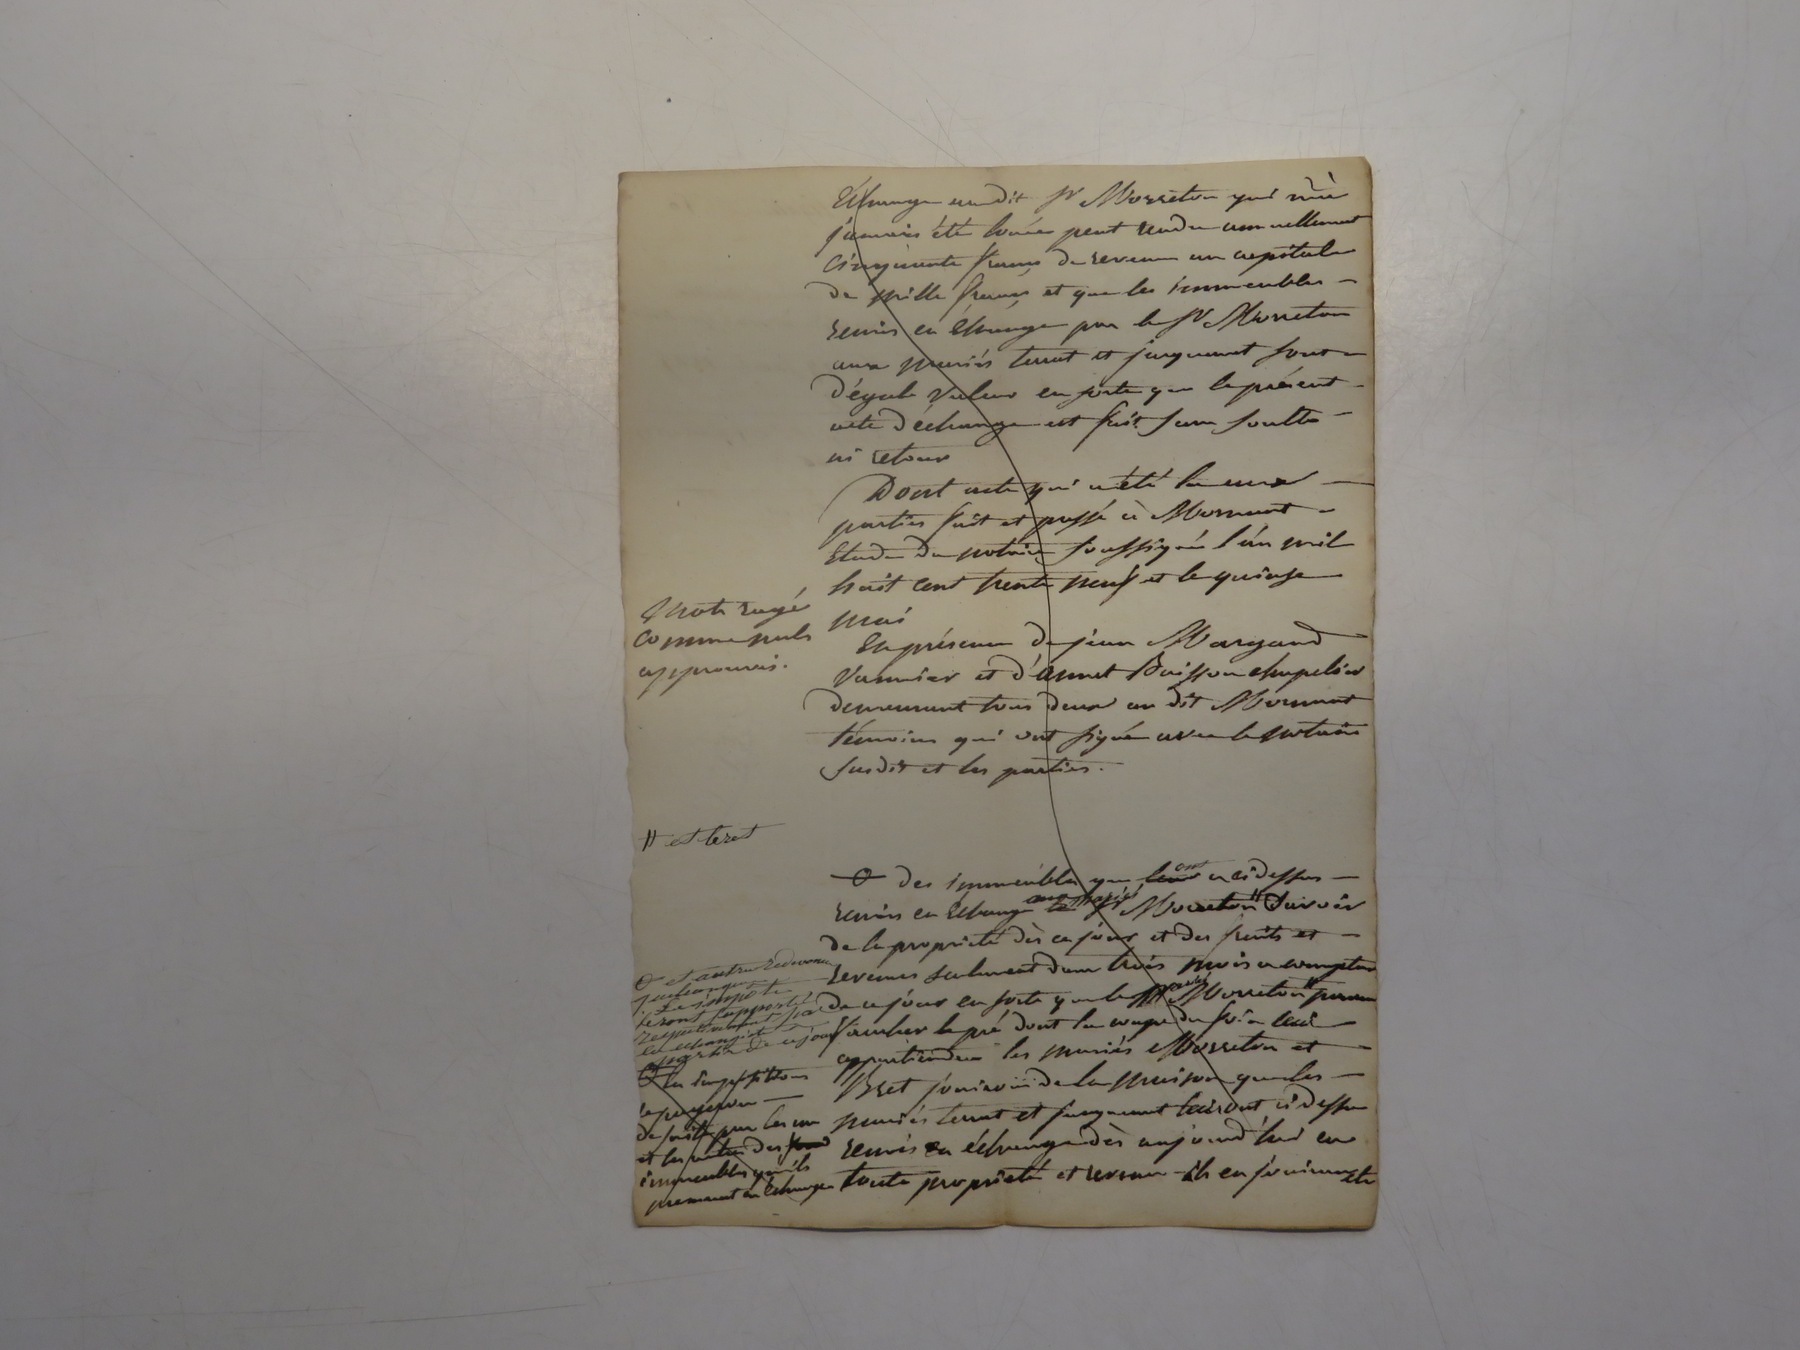 Echange audit Sr Morreton qui n'a
jamais été louée peut rendre annuellement
cinquante francs de revenu au capital
de mille francs et que les immeubles
remis en échange par le Sr Morreton
aux mariés terrat et jurquenet sont
d'égale valeur en sorte que le présent
acte d'échange est fait sans soulte
ni retour
Dont acte qui a été lu aux
parties fait et passé à Mornant
Etude du notaire soussigné l'an mil
huit cent trente neuf et le quinze
mai
En présence de jean Margand
Vannier et d'annet Buisson chapelier
demeurant tous deux au dit Mornant
témoins qui ont signé avec le notaire
susdit et les parties.
mots rayé
comme nuls
approuvés.
# et bret
des immeubles que ont ci dessus
remis en Echange mariés Morreton # Savoir
de la propriété dès ce jour et des fruits et
revenus seulement dans trois mois à compter
de ce jour en sorte que les mariés Morreton #
faucher le pré dont la coupe du foin leur
appartiendra les mariés Morreton et
Bret jouiront de la maison que les
mariés terrat et jurquenet leur ont ci dessus
remis en échange dès aujourd'hui en
toute propriété et revenu ils en jouiront
et autre redevance
Les impôts
seront supportés
respectivement par
les échangistes
à partir de ce jour
les impositions
de suite par les uns
et les autres des
immeubles qu'ils
prennent en échange